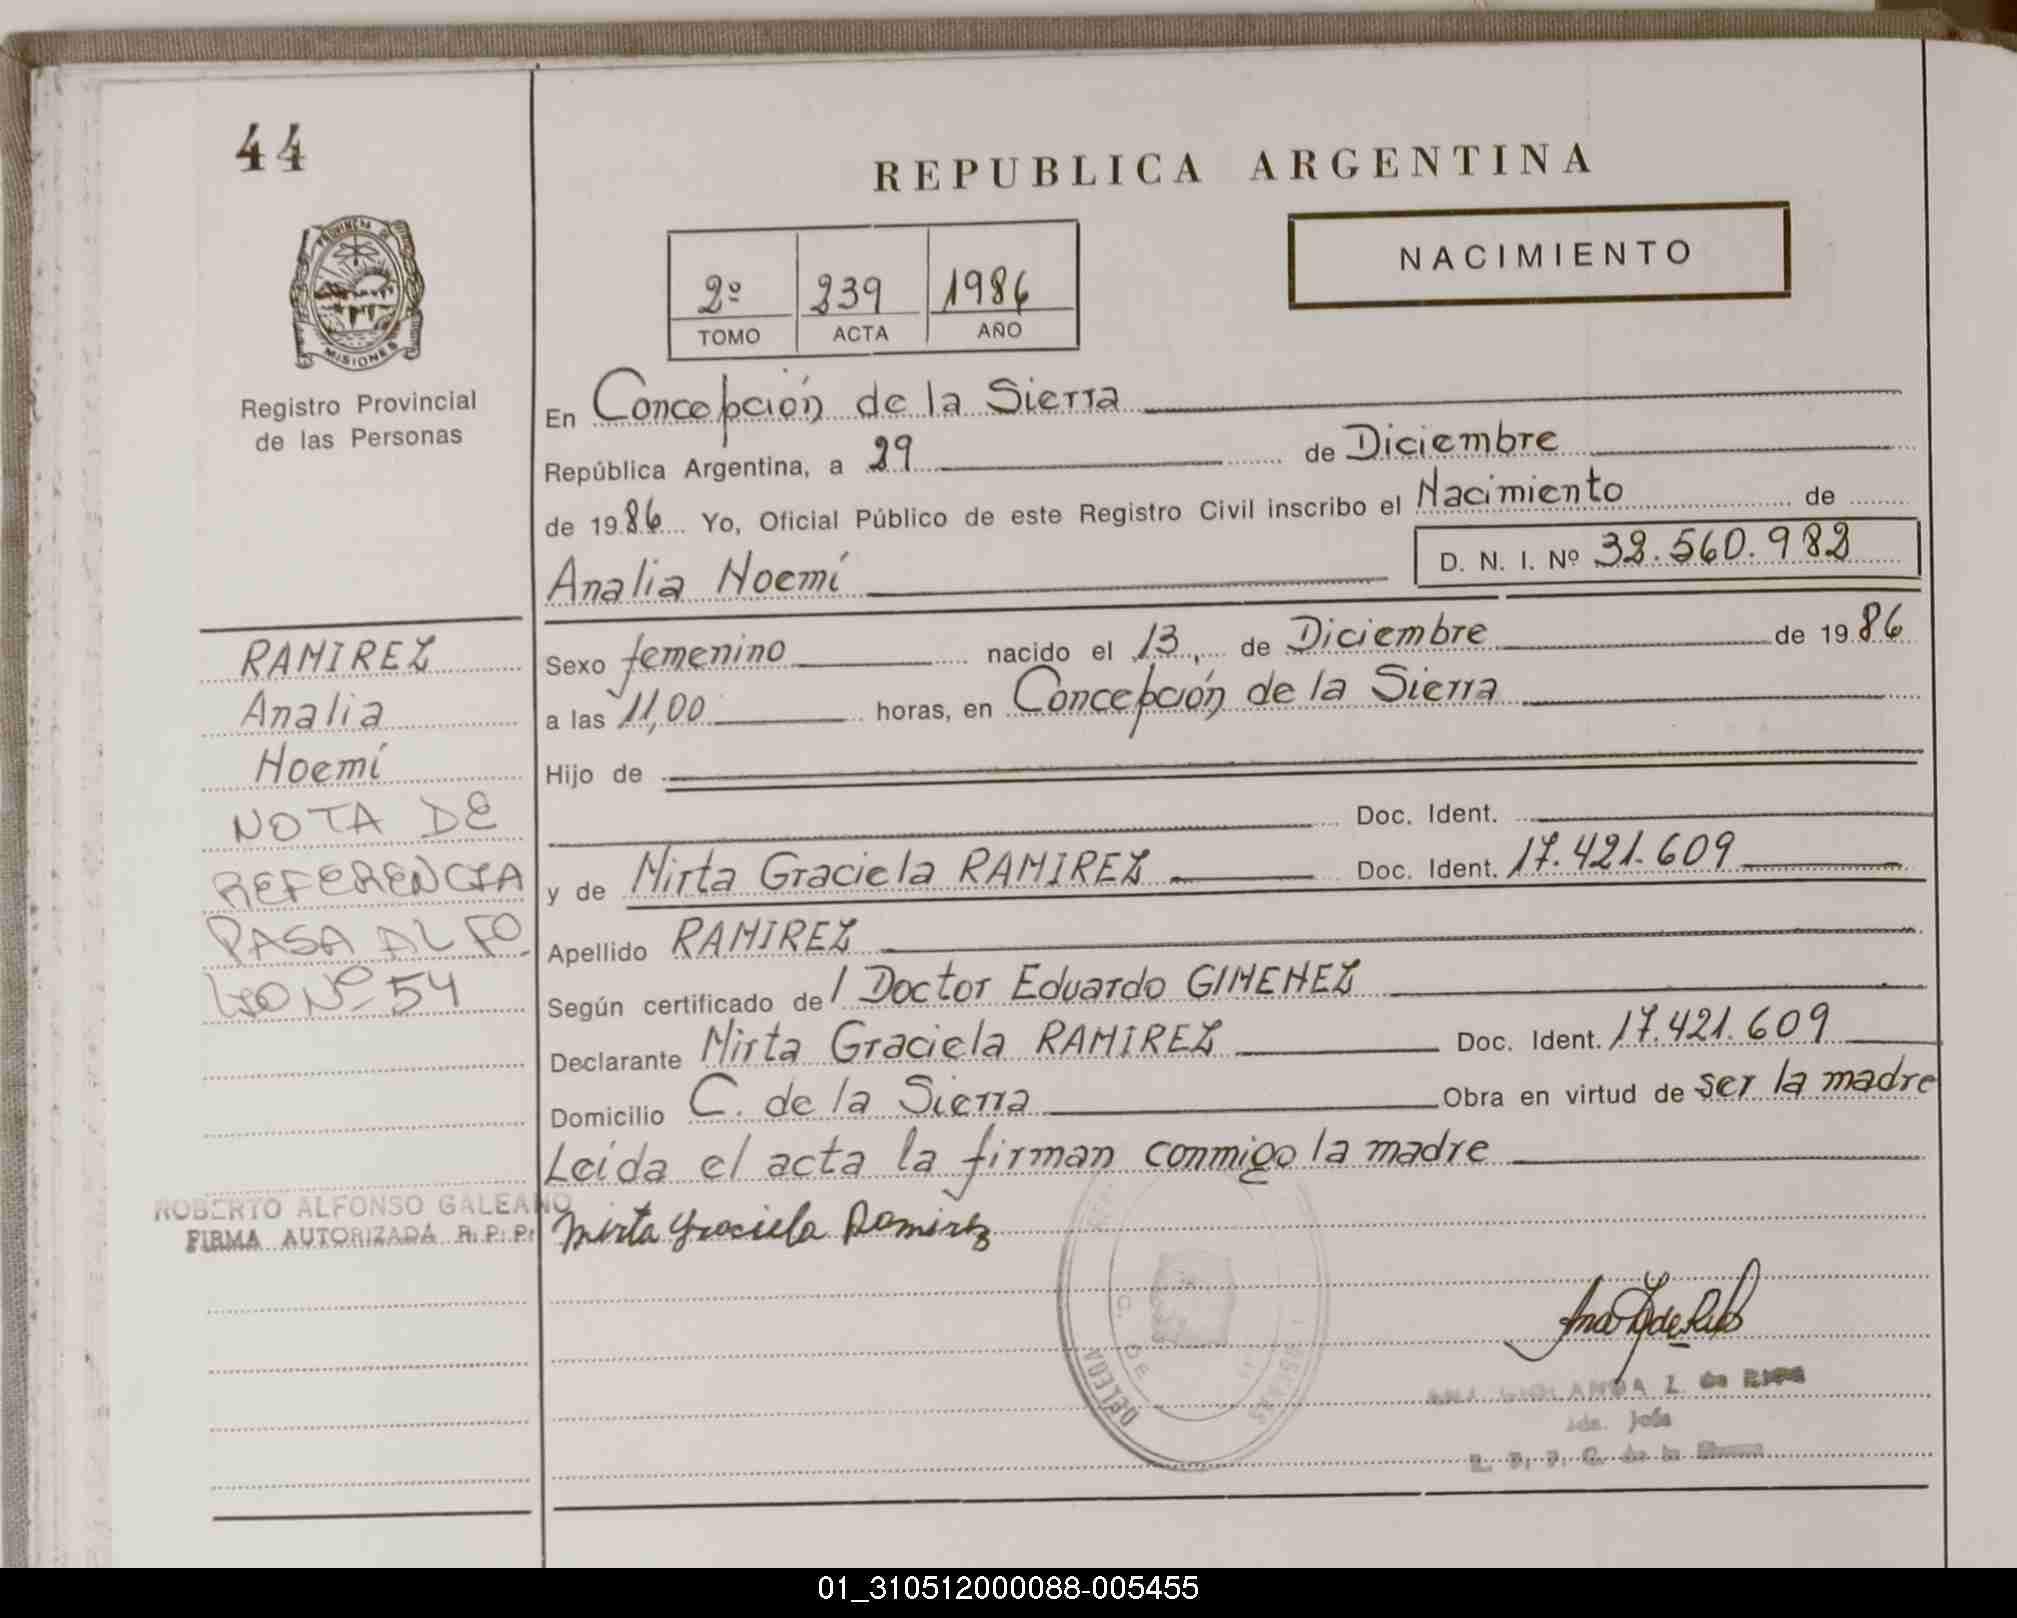 44
REPUBLICA ARGENTINA
NACIMIENTO
PROVINCIA DE
MISIONES
2º 239 1986
TOMO ACTA AÑO
Registro Provincial
de las Personas
En Concepción de la Sierra
República Argentina, a 29 de Diciembre
de 1986 Yo, Oficial Público de este Registro Civil inscribo el Nacimiento de
Analia Noemí D. N. I. Nº 32.560.982
RAMIREZ
Analia
Noemí
NOTA DE
REFERENCIA
PASA AL FO
LIO Nº 54
Sexo femenino nacido el 13, de Diciembre de 1986
a las 11,00 horas, en Concepción de la Sierra
Hijo de
Doc. Ident.
y de Mirta Graciela RAMIREZ Doc. Ident. 17.421.609
Apellido RAMIREZ
Según certificado de l Doctor Eduardo GIMENEZ
Declarante Mirta Graciela RAMIREZ Doc. Ident. 17.421.609
Domicilio C. de la Sierra Obra en virtud de ser la madre
Leída el acta la firman conmigo la madre
ROBERTO ALFONSO GALEANO
FIRMA AUTORIZADA R. P. P.
Mirta Graciela Ramirez
C. DE
DELEGA
Z. de
Jefa
R. P. P. C. de la
01_310512000088-005455